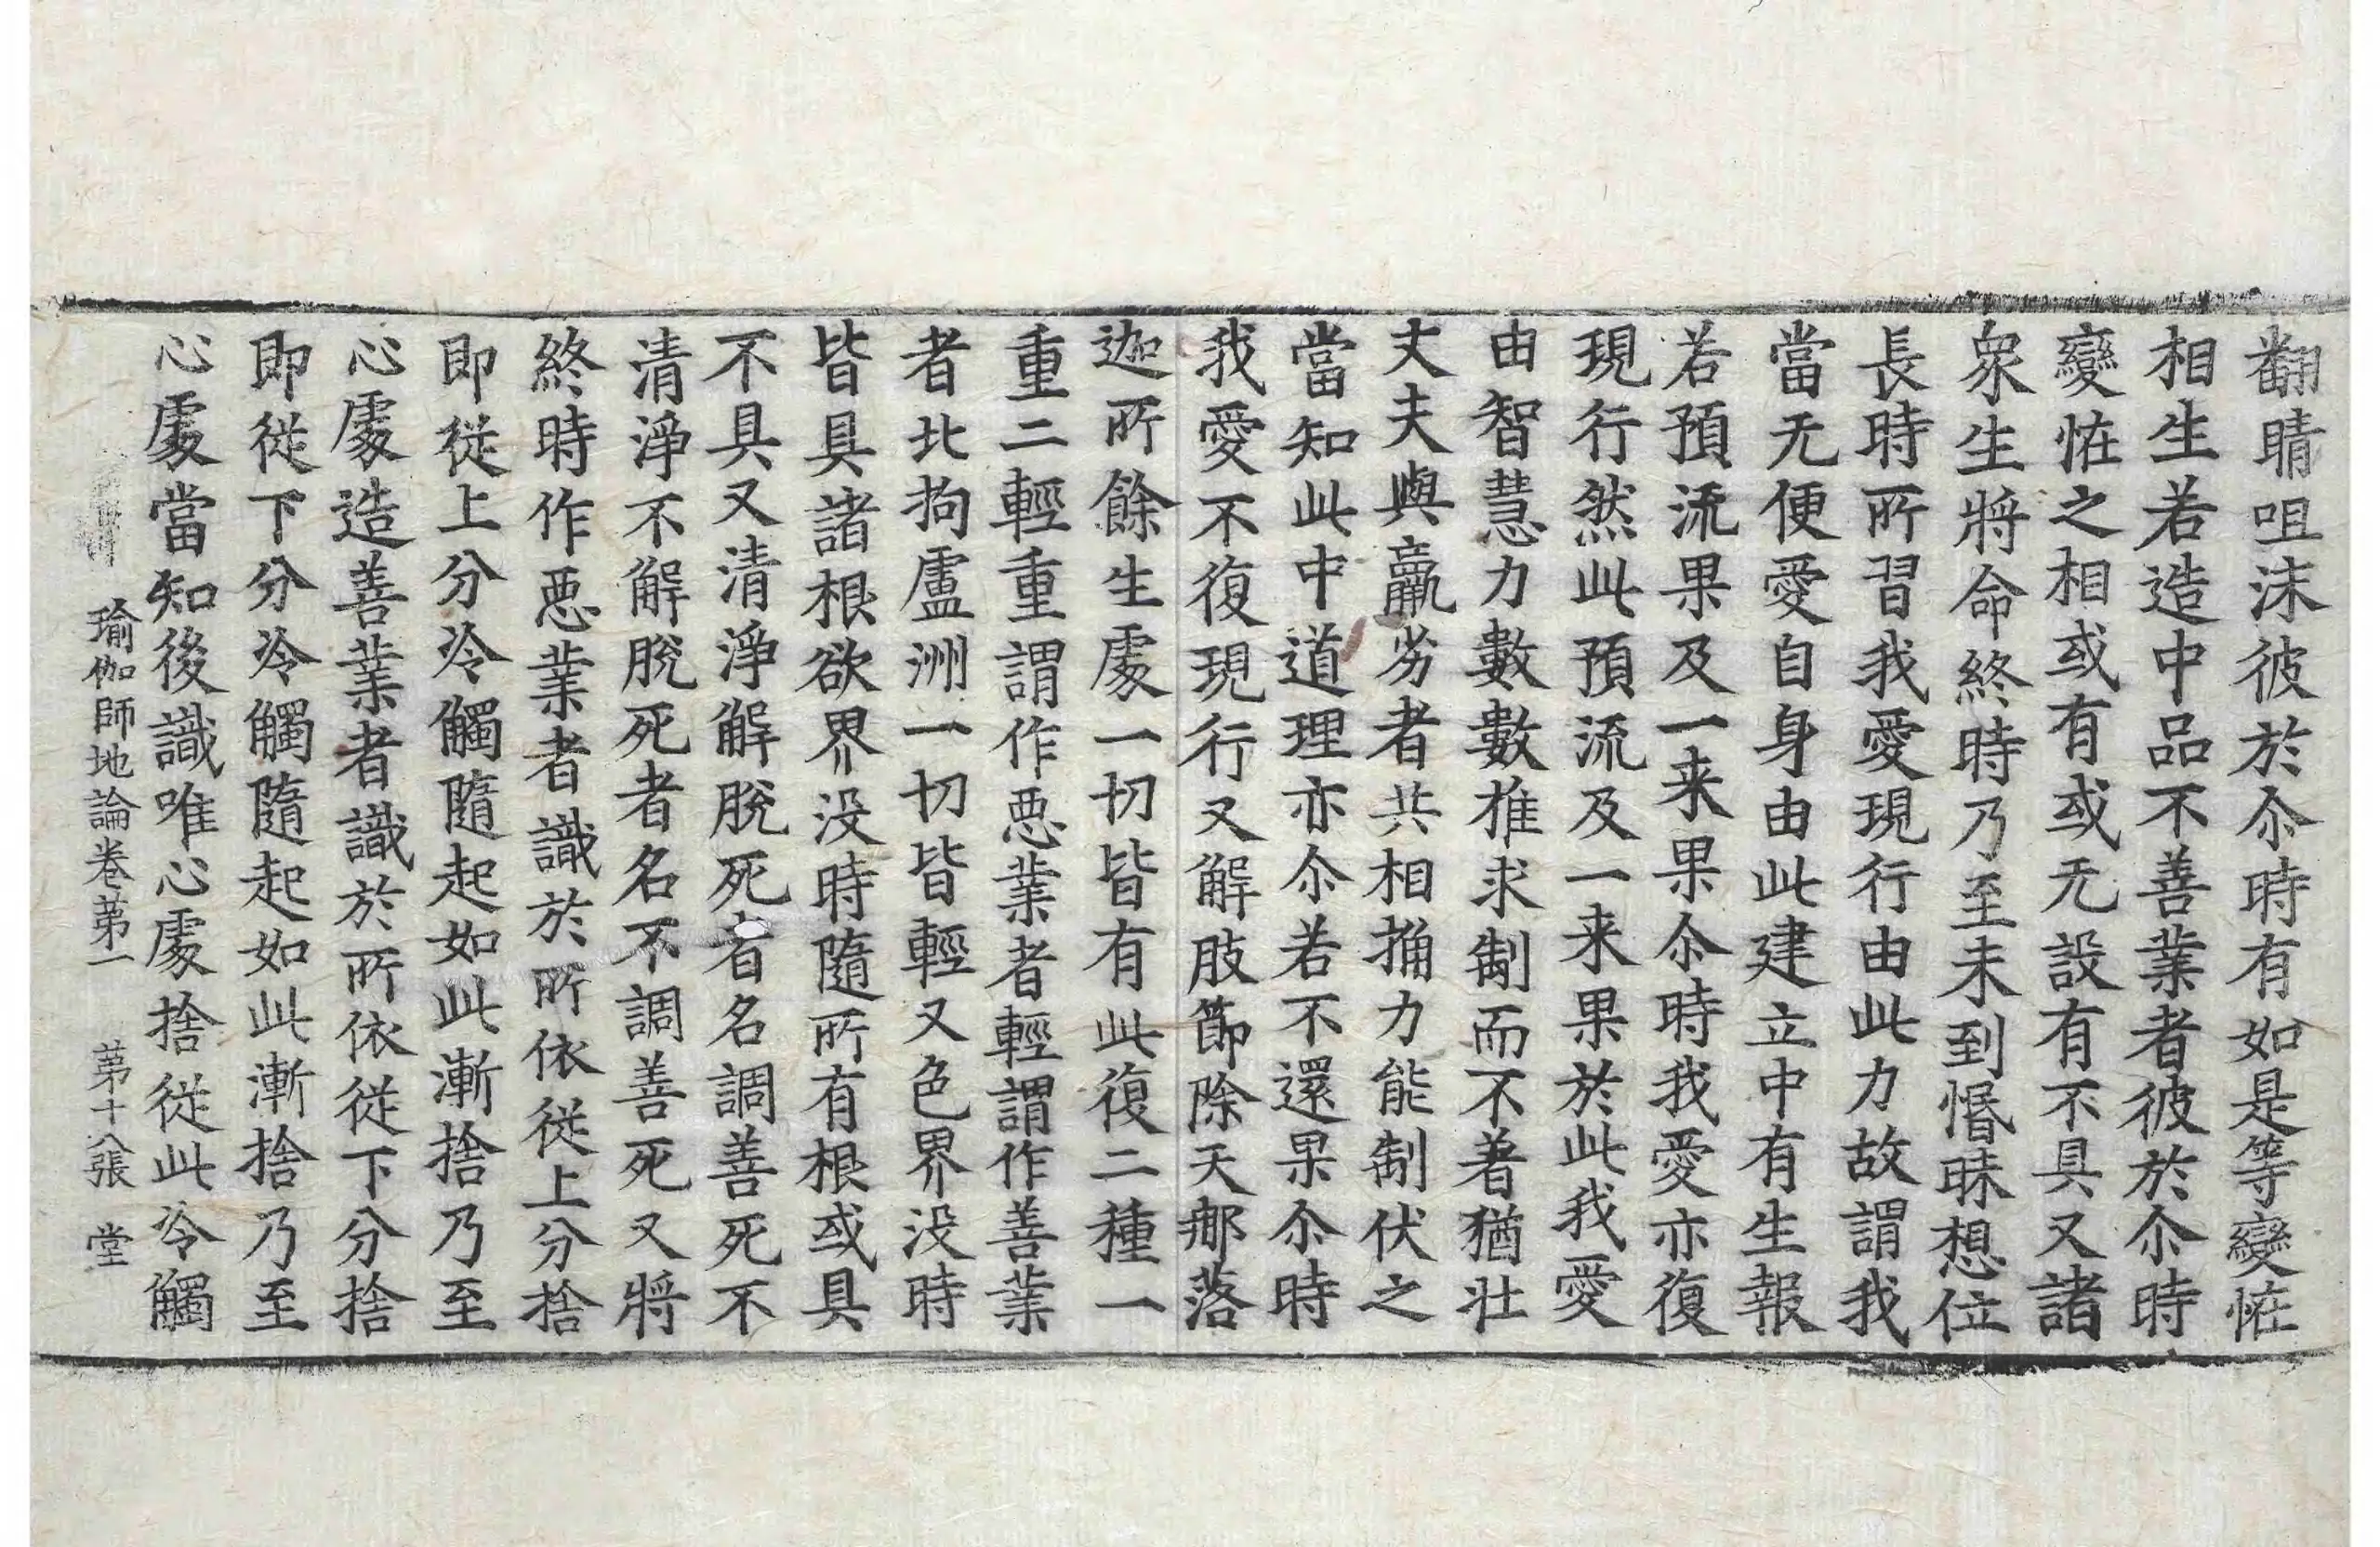 翻睛咀沫彼於尒時有如是等變恠
相生若造中品不善業者彼於尒時
變恠之相或有或无設有不具又諸
衆生將命終時乃至未到惛昧想位
長時所習我愛現行由此力故謂我
當无便愛自身由此建立中有生報
若預流果及一来果尒時我愛亦復
現行然此預流及一来果於此我愛
由智慧力數數推求制而不著猶壮
丈夫與羸劣者共相捔力能制伏之
當知此中道理亦尒若不還果尒時
我愛不復現行又解肢節除天那落
迦所餘生處一切皆有此復二種一
重二輕重謂作惡業者輕謂作善業
者北拘盧洲一切皆輕又色界没時
皆具諸根欲界没時隨所有根或具
不具又清淨解脫死者名調善死不
清淨不解脫死者名不調善死又將
終時作惡業者識於所依從上分捨
即從上分冷觸隨起如此漸捨乃至
心處造善業者識於所依從下分捨
即從下分冷觸隨起如此漸捨乃至
心處當知後識唯心處捨從此冷觸
瑜伽師地論卷第一 第十八張 堂